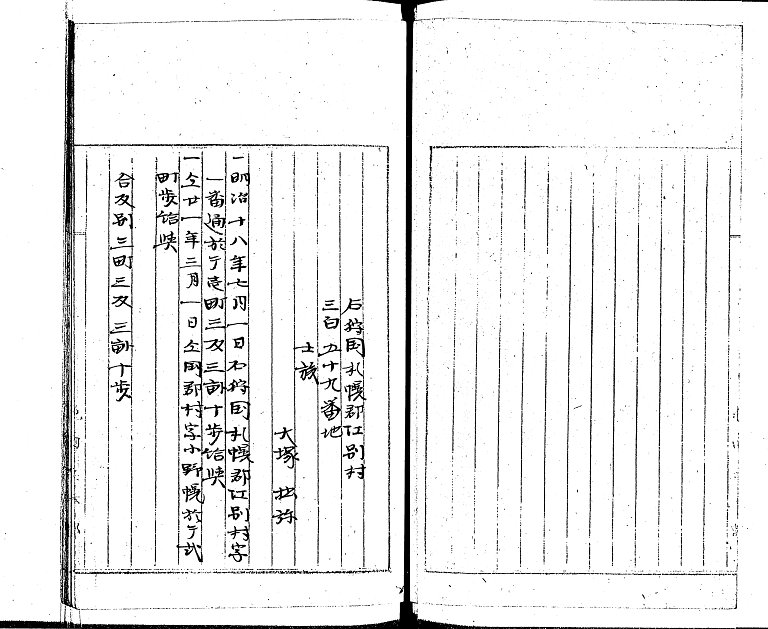 石狩国札幌郡江別村
三百五十九番地
士族
大塚
一明治十八年七月一日石狩国札幌郡江別村字
一番通於テ壱町三反三畝十歩給与
一仝廿一年三月一日仝国郡村字小野幌於テ弐
町歩給与
合反別三町三反三畝十歩